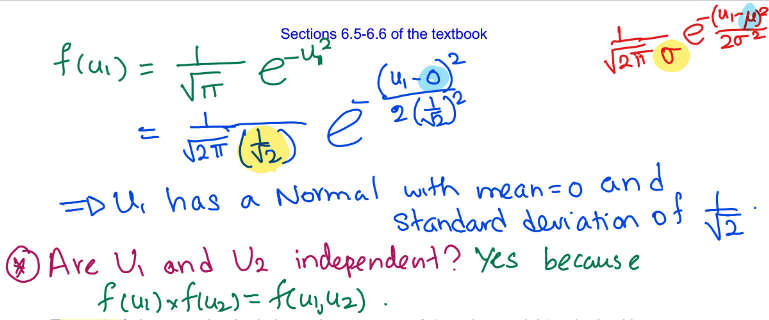 Sections 6.5-6.6 of the textbook
f(u₁) = 1/√π e^(-u₁²)
1/(√2π σ) e^(-(u₁-μ)²/2σ²)
= 1/(√2π (1/√2)) e^(-(u₁-0)²/2(1/√2)²)
⇒ U₁ has a Normal with mean=0 and
standard deviation of 1/√2.
(*) Are U₁ and U₂ independent? Yes because
f(u₁)×f(u₂)= f(u₁,u₂).